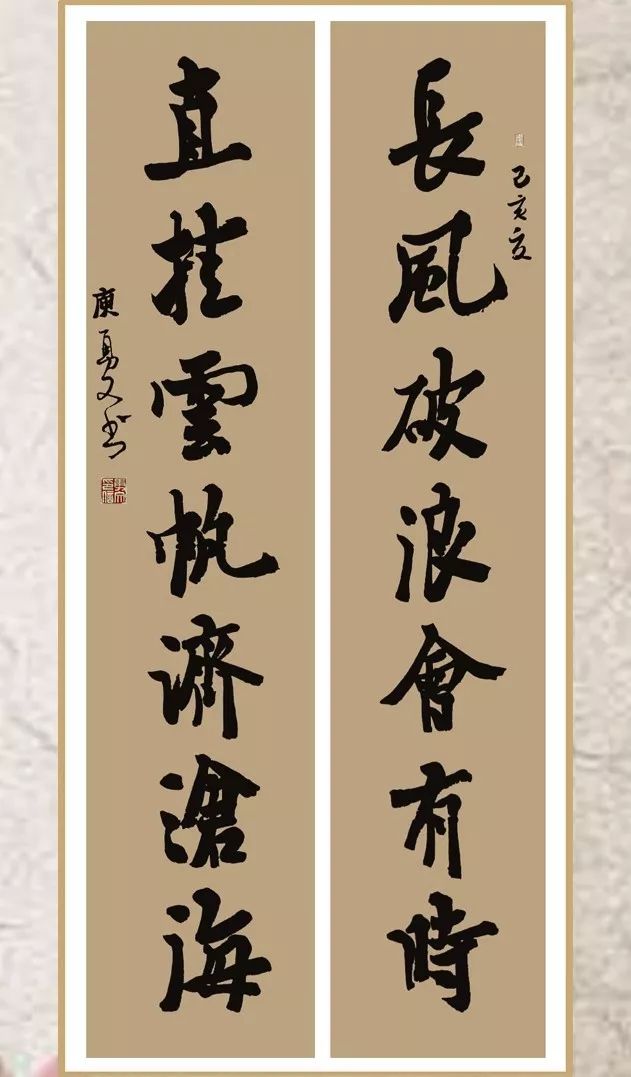 長風破浪會有時
己亥夏
直挂雲帆濟滄海
庾勇文书